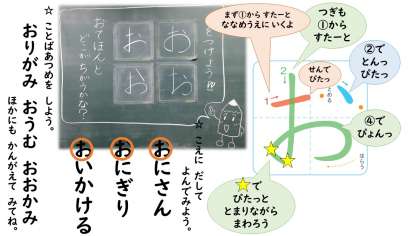 ☆ ことばあつめを しよう。
おりがみ おうむ おおかみ
ほかにも かんがえて みてね。
をつけよう
おてほんと
どこがちがうかな?
お
お
お
お
☆ こえに だして
よんでみよう。
おにさん
おにぎり
おいかける
まず①から すたーと
ななめうえに いくよ
つぎも
①から
すたーと
②で
とんっ
ぴたっ
せんで
ぴたっ
④で
ぴょんっ
☆で
ぴたっと
とまりながら
まわろう
1
2
とめる
はらう